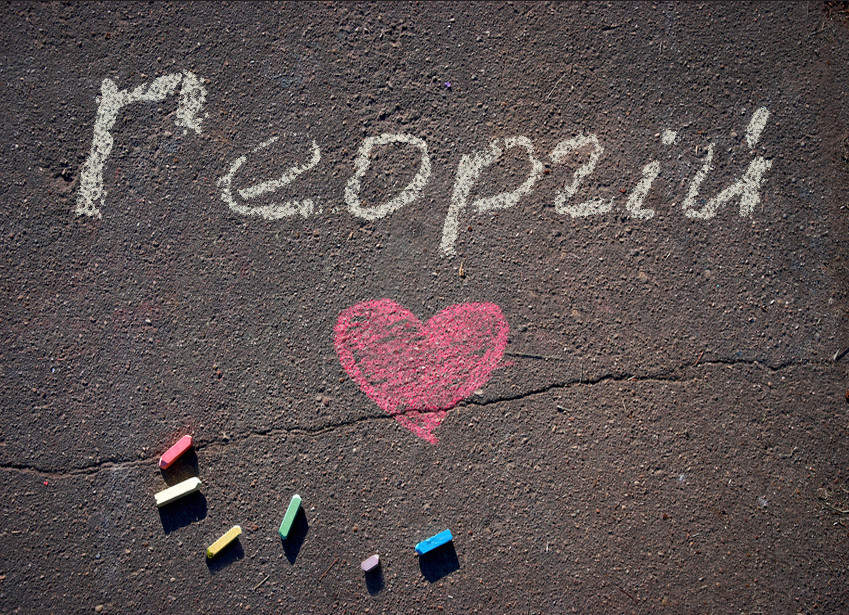 Георгій